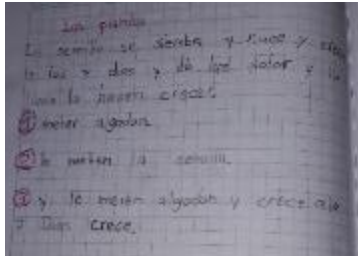 Las plantas
La semilla se siembra y nace y crece
a los 7 dias y da luz solar y la
la hacen crecer.
① meter algodon
② le meten la semilla.
③ y le meten algodon y crece a los
7 Dias crece.